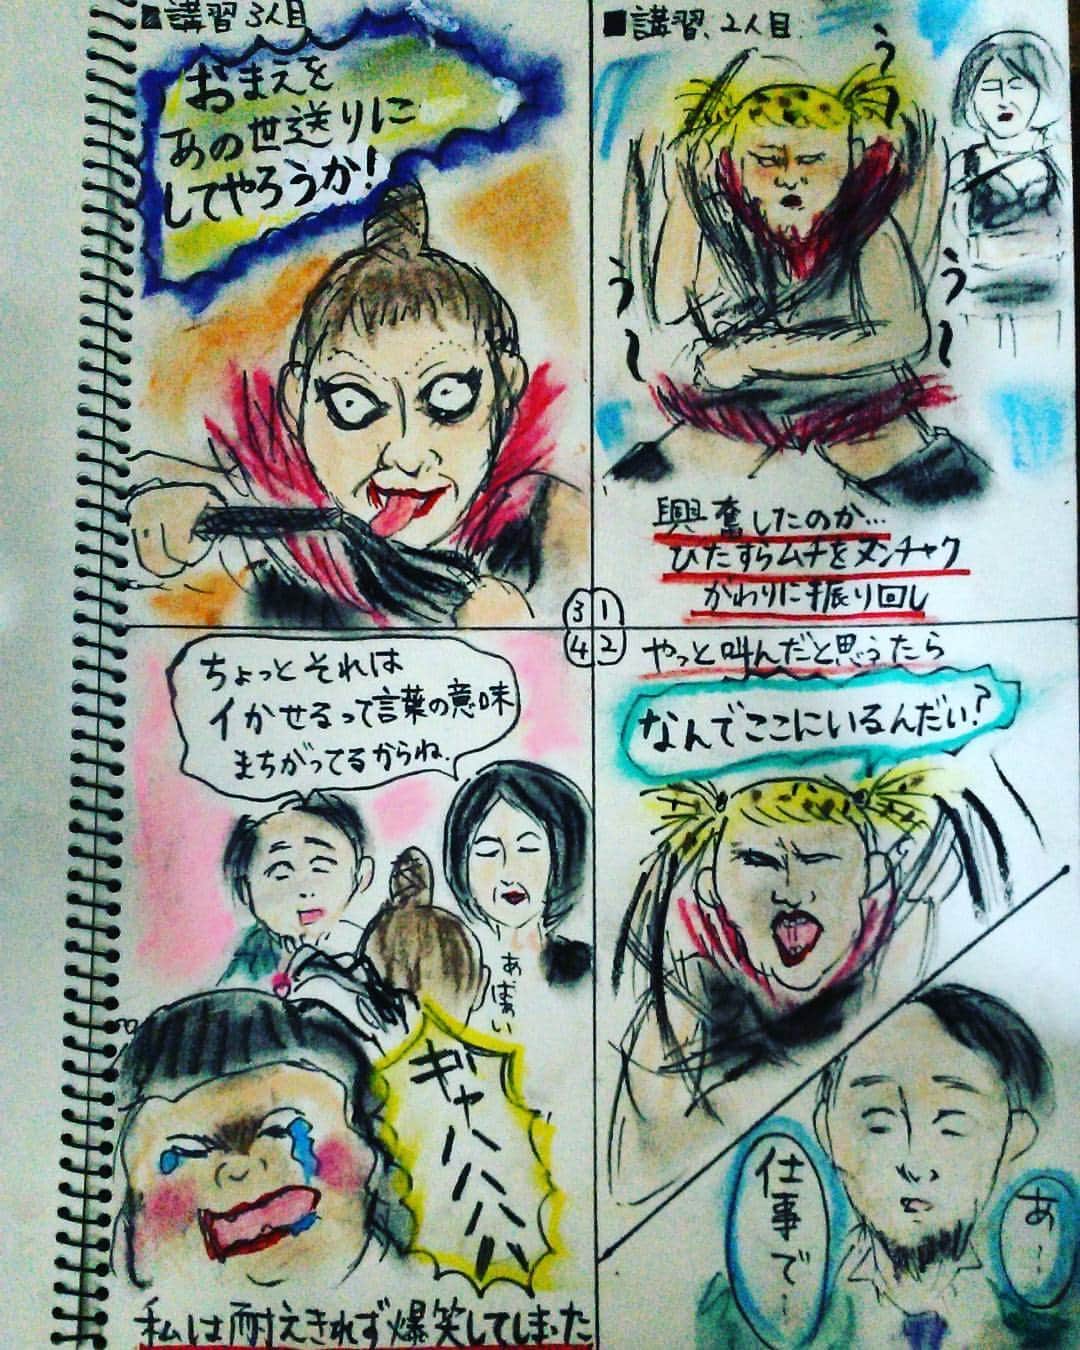 ■講習、2人目
うー
うー
うー
興奮したのか…
ひたすらムチをヌンチャク
がわりに振り回し
1
2
やっと叫んだと思うたら
なんでここにいるんだい?
あ…
仕事で…
■講習 3人目
おまえを
あの世送りに
してやろうか!
3
4
ちょっとそれは
イかせるって言葉の意味
まちがってるからね.
ギャハハハハ
私は耐えきれず爆笑してしまった